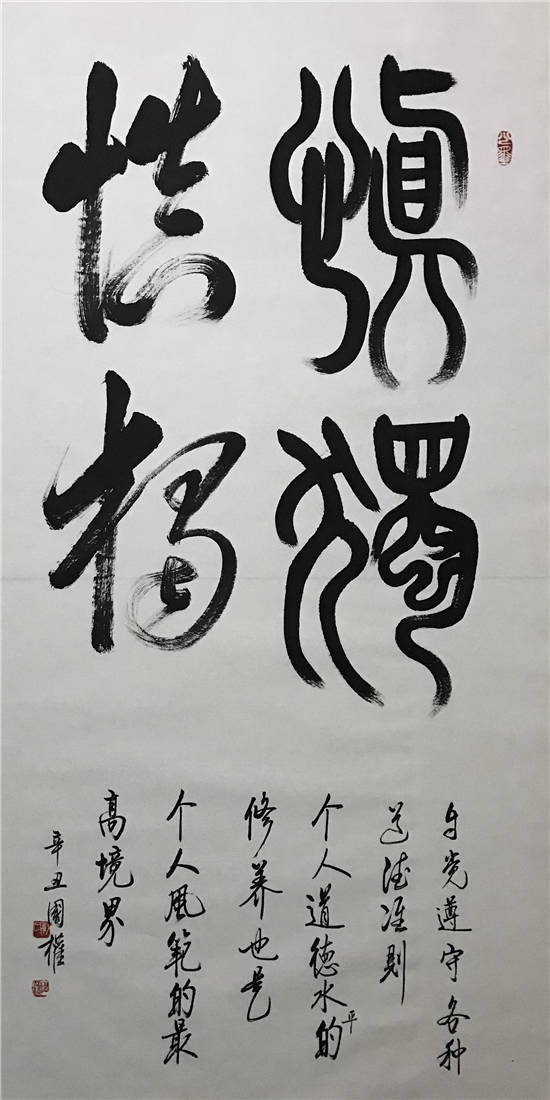 慎獨
慎獨
自觉遵守各种
道德准则
个人道德水平的
修养也是
个人風範的最
高境界
辛丑國權